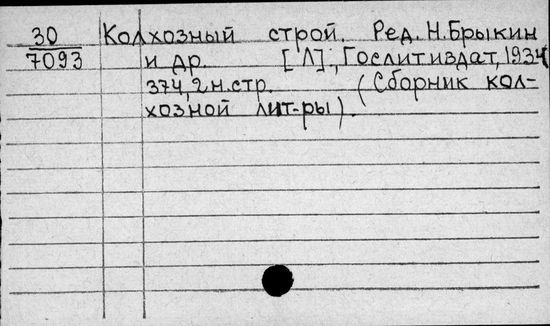 30 Колхозный строй. Ред. Н.Брыкин
7093 и др. [Л]., Гослитиздат, 1934
374, 2 н.стр. (Сборник кол-
хозной лит-ры).